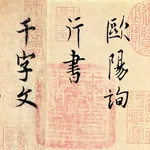 歐陽詢
行書
千字文